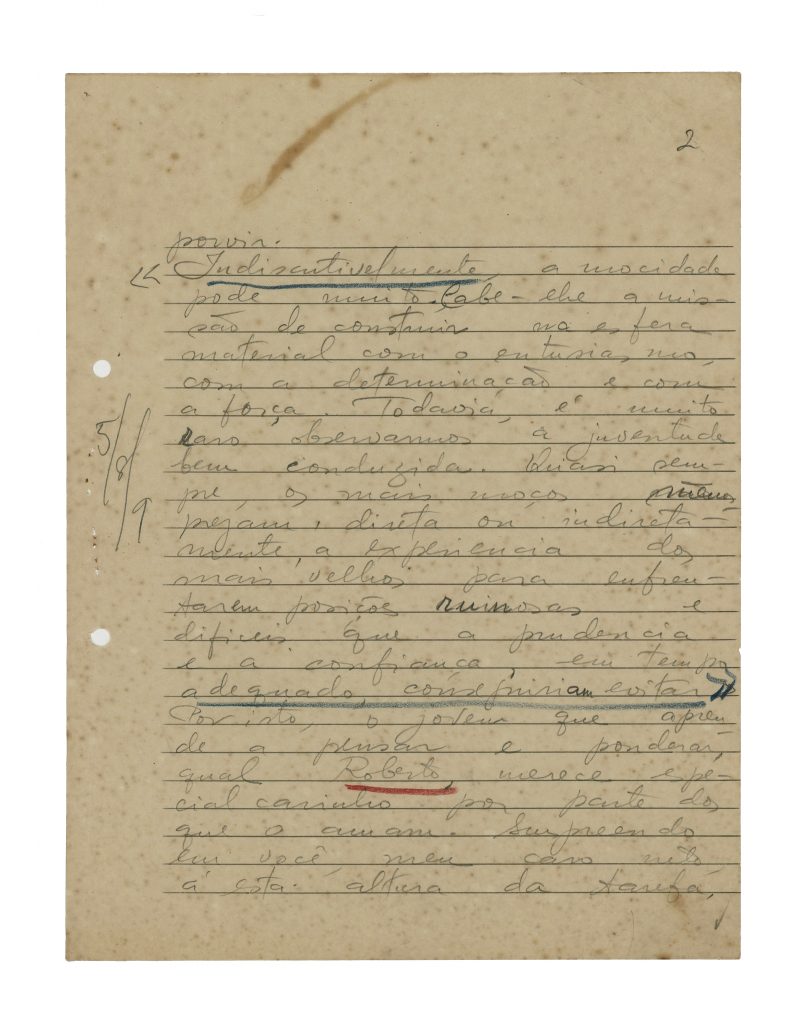 2
porvir.
<< Indiscutivelmente, a mocidade
pode muito. Cabe-lhe a mis-
são de construir na esfera
material com o entusiasmo,
com a determinação e com
a força. Todavia, é muito
raro observarmos a juventude
bem conduzida. Quasi sem-
pre, os mais moços menos
prezam, direta ou indireta-
mente, a experiencia dos
mais velhos para enfren-
tarem posições ruinosas e
dificeis que a prudencia
e a confiança, em tempo
adequado, conseguiriam evitar >>
Por isto, o jovem que apren
de a pensar e ponderar,
qual Roberto, merece espe-
cial carinho por parte dos
que o amam. Surpreendo
em você, meu caro neto,
á esta altura da tarefa,
5/8/9